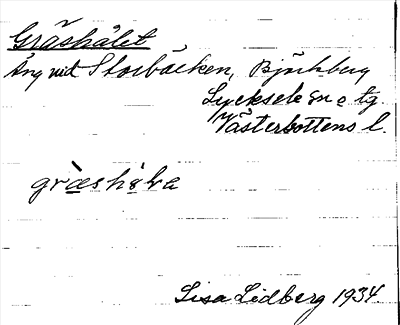 Gräshålet
Äng vid Storbäcken, Björkberg
Lycksele sn o tg.
Västerbottens l.
græshɵlɐ
Lisa Lidberg 1934.